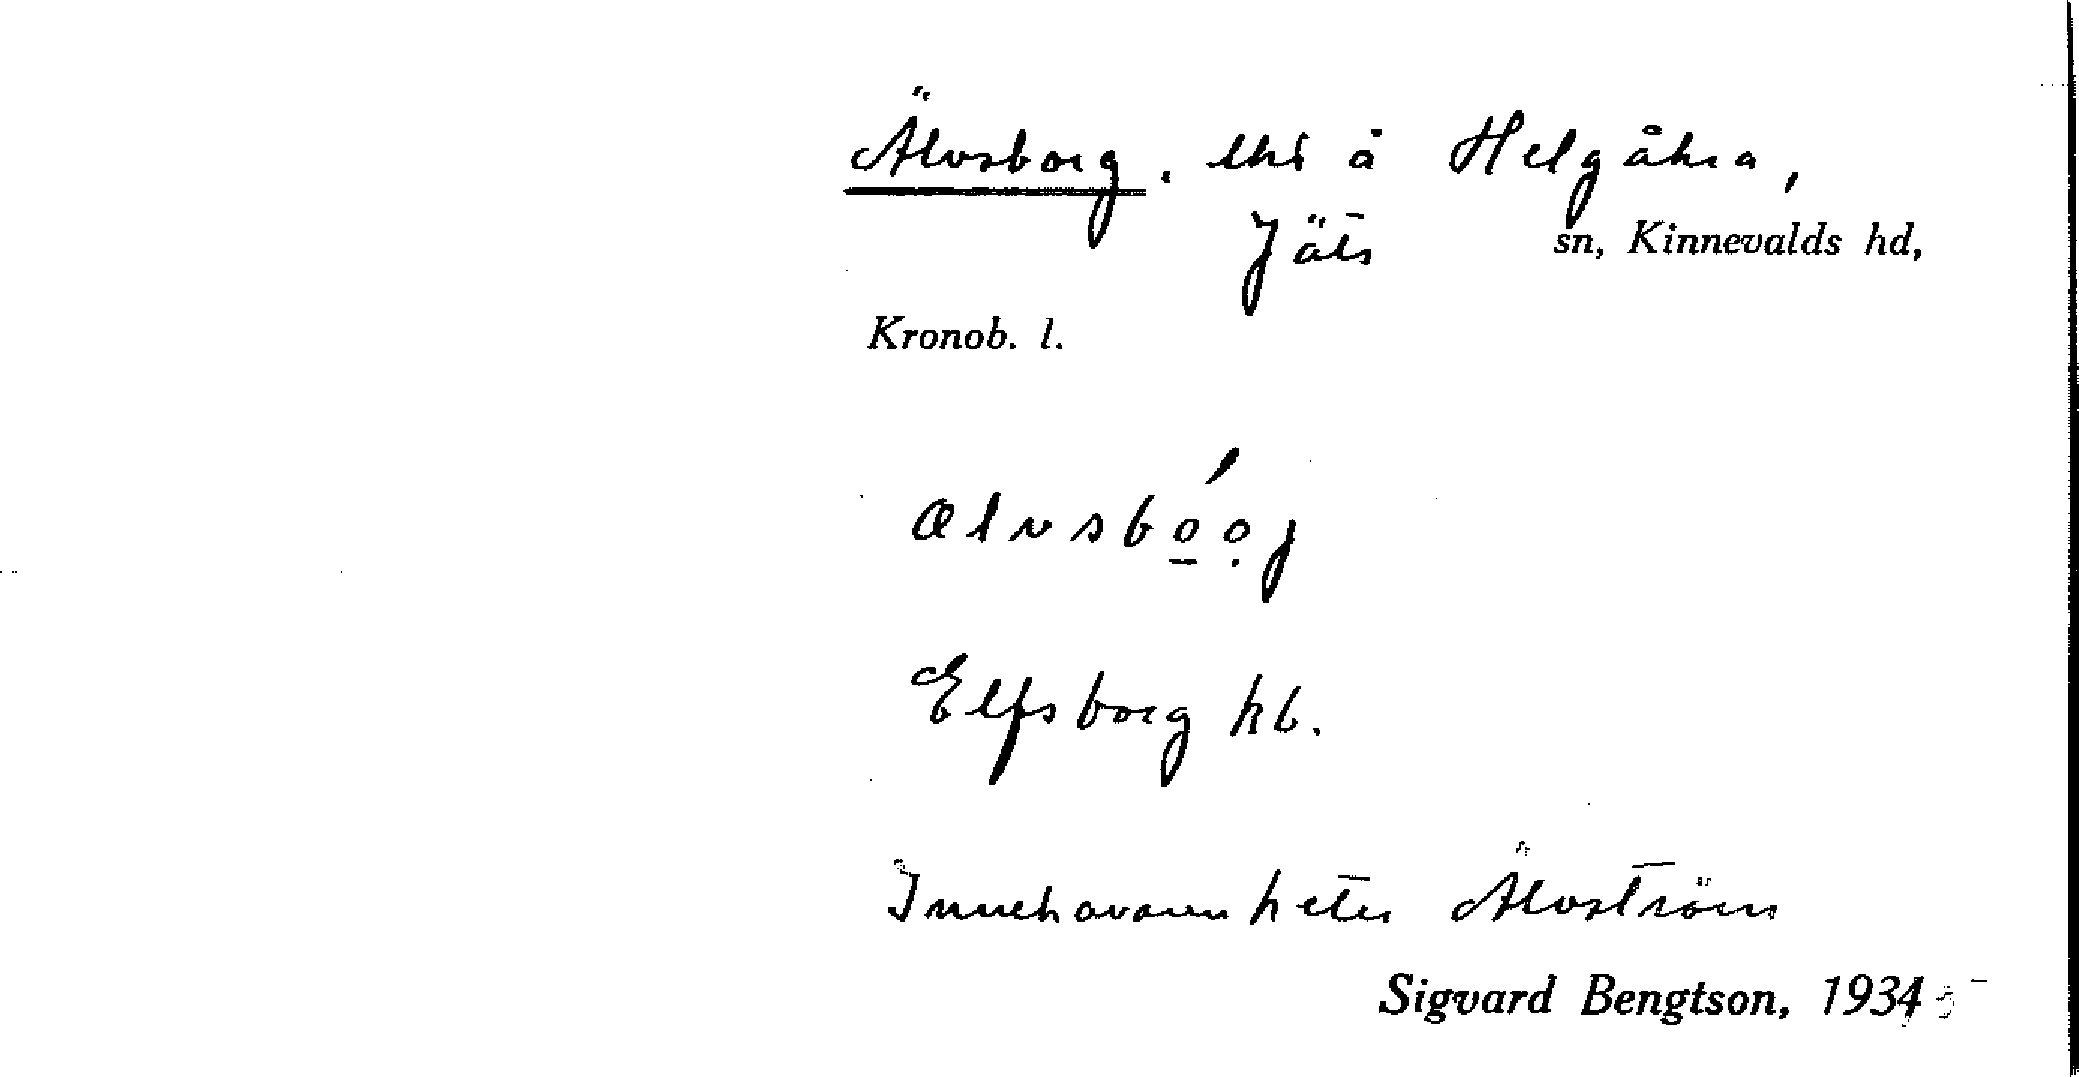 Älvsborg. lht å Helgåkra,
Jäts sn, Kinnevalds hd,
Kronob. l.
ælvsbó̠ọj
Elfsborg hb.
Innehavaren heter Älvström
Sigvard Bengtson, 1934